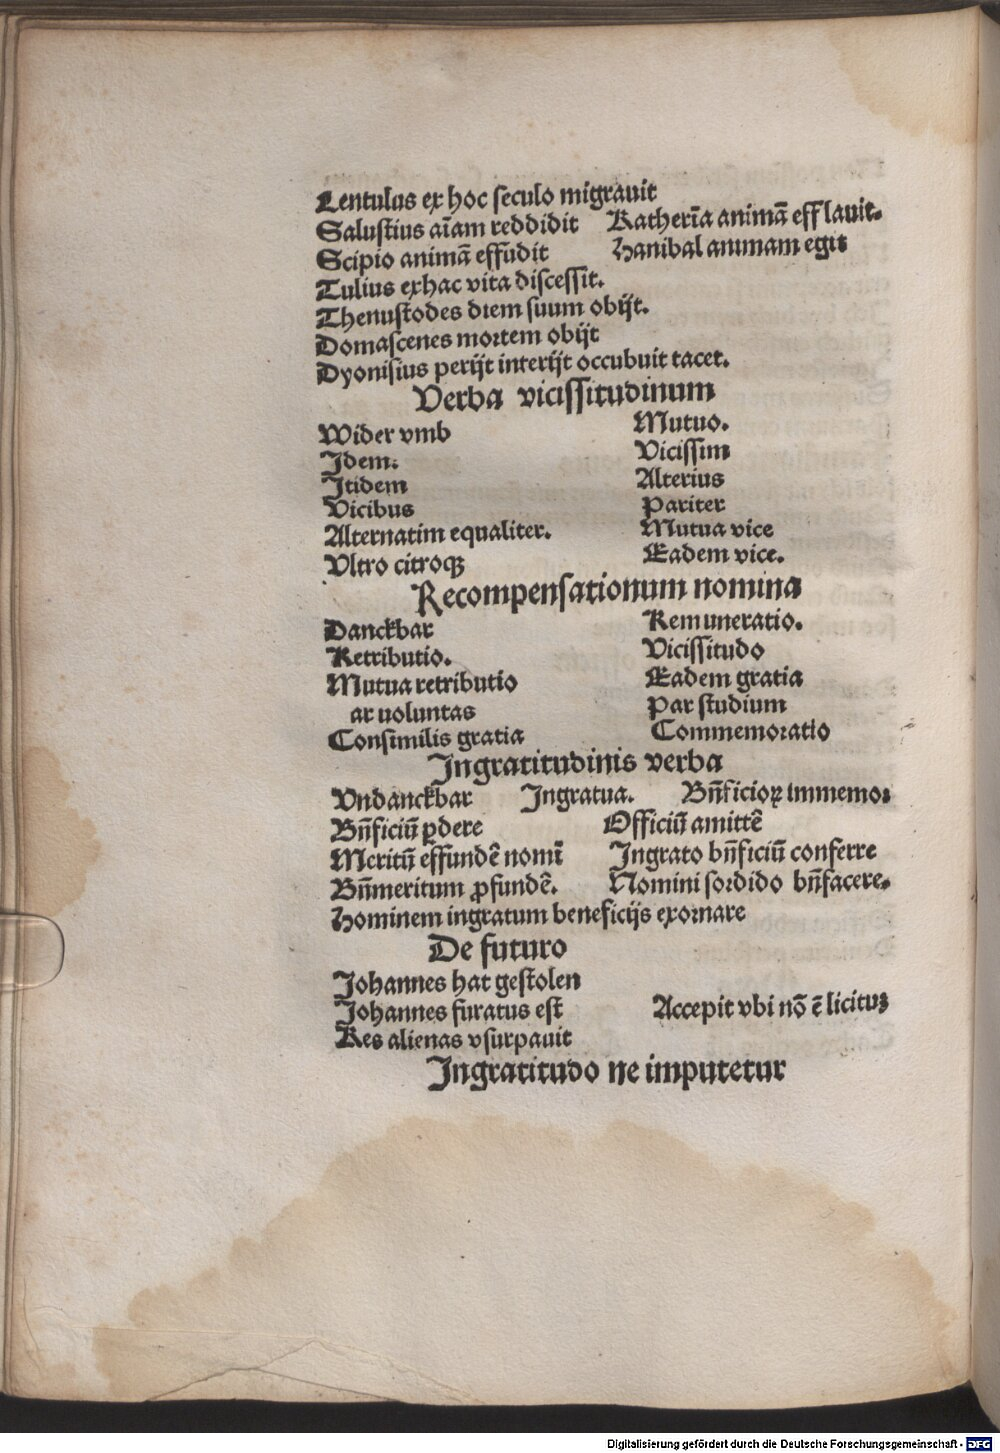 Lentulus ex hoc seculo migrauit
Salustius aīam reddidit Katherīa animā efflauit.
Scipio animā effudit Hanibal animam egit
Tulius exhac vita discessit.
Themistodes diem suum obijt.
Domascenes mortem obijt
Dyonisius perijt interijt occubuit tacet.
Verba vicissitudinum
Wider vmb Mutuo.
Idem. Vicissim
Itidem Alterius
Vicibus Pariter
Alternatim equaliter. Mutua vice
Vltro citroqꝫ Eadem vice.
Recompensationum nomina
Danckbar Remuneratio.
Retributio. Vicissitudo
Mutua retributio Eadem gratia
ar uoluntas Par studium
Consimilis gratia Commemoratio
Ingratitudinis verba
Vndanckbar Ingratua. Bn̄ficioꝝ immemor
Bn̄ficiū ꝑdere Officiū amittē
Meritū effundē nomī Ingrato bn̄ficiū conferre
Bn̄meritum ꝓfundē. Nomini sordido bn̄facere.
Hominem ingratum beneficijs exornare
De futuro
Johannes hat gestolen
Johannes furatus est Accepit vbi nō ē licituꝫ
Res alienas vsurpauit
Ingratitudo ne imputetur
Digitalisierung gefördert durch die Deutsche Forschungsgemeinschaft - DFG